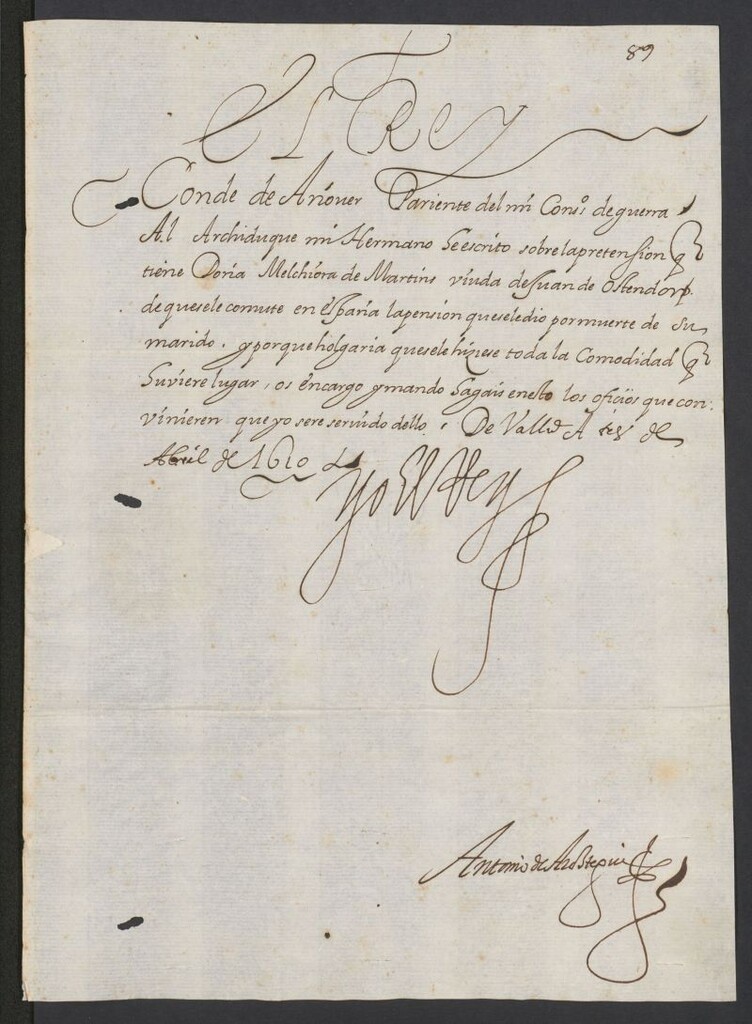 89
El Rey
Conde de Añover Pariente del mi Cons.º de guerra
Al Archiduque mi Hermano he escrito sobre la pretension q
tiene Doña Melchiora de Martins viuda de Juan de Ostendorp.
de que se le comute en españa la pension que se le dio por muerte de su
marido. y porque holgaria que se le hiziese toda la Comodidad q
huviere lugar, os encargo y mando hagais en esto los oficios que con:
vinieren que yo sere servido dello, De Valld A de
Abril de 1610
Yo El Rey
Antonio de Arostegui